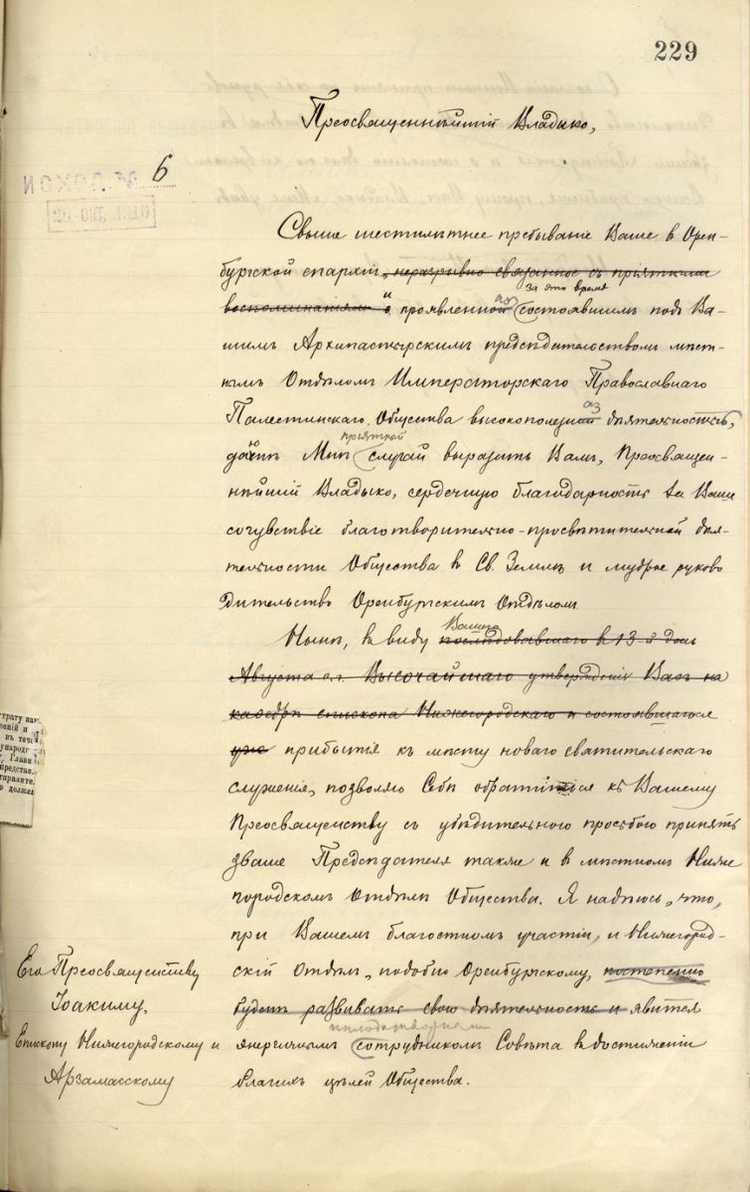 229
Преосвященнѣйшій Владыко,
6
Свыше шестилѣтнее пребываніе Ваше в Орен-
бургской епархіи, неразрывно связанное съ пріятными
за это время
воспоминаніями о, и проявленная состоявшимъ подъ Ва-
шимъ Архипастырскимъ предсѣдательствомъ мѣст-
нымъ Отдѣломъ Императорскаго Православнаго
Палестинскаго Общества высокополезная дѣятельность,
пріятный
даютъ Мнѣ случай выразить Вамъ, Преосвящен-
нѣйшій Владыко, сердечную благодарность за Ваше
сочувствіе благотворительно-просвѣтительной дѣя-
тельности Общества в Св. Землѣ и мудрое руково
дительство Оренбургскимъ Отдѣломъ
Вашего
Нынѣ, в виду послѣдовавшаго в 13-й день
Августа с.г. Высочайшаго утвержденія Васъ на
каѳедрѣ епископа Нижегородскаго и состоявшагося
уже прибытія къ мѣсту новаго святительскаго
служенія, позволяю Себѣ обратиться къ Вашему
Преосвященству съ убѣдительною просьбою принять
званіе Предсѣдателя также и в мѣстномъ Ниже
городскомъ Отдѣлѣ Общества. Я надѣюсь, что,
при Вашемъ благостномъ участіи, и Нижегород-
скій Отдѣлъ, подобно Оренбургскому, постепенно
будетъ развивать свою дѣятельность и явится
энергичнымъ сотрудникомъ Совѣта в достиженіи
благихъ цѣлей Общества.
Его Преосвященству
Іоакиму,
Епископу Нижегородскому и
Арзамасскому